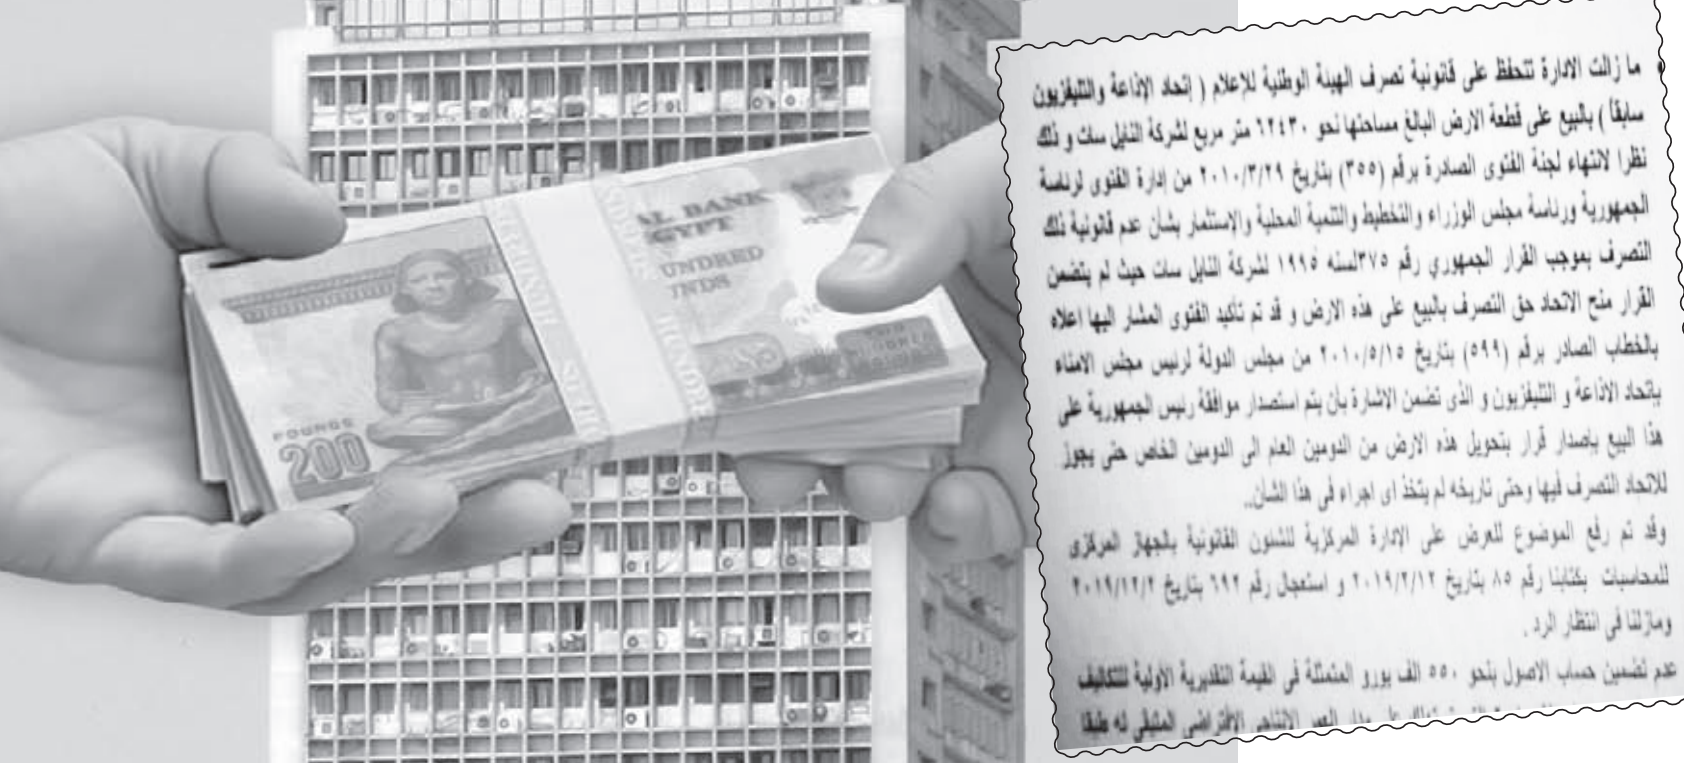 AL BANK
EGYPT
UNDRED
UNDS
POUNDS
200
ما زالت الادارة تتحفظ على قانونية تصرف الهيئة الوطنية للإعلام ( إتحاد الإذاعة والتليفزيون
سابقاً ) بالبيع على قطعة الارض البالغ مساحتها نحو ٦٢٤٣٠ متر مربع لشركة النايل سات و ذلك
نظرا لانتهاء لجنة الفتوى الصادرة برقم (٣٥٥) بتاريخ ٢٠١٠/٣/٢٩ من إدارة الفتوى لرئاسة
الجمهورية ورئاسة مجلس الوزراء والتخطيط والتنمية المحلية والإستثمار بشأن عدم قانونية ذلك
التصرف بموجب القرار الجمهوري رقم ٣٧٥لسنه ١٩٩٥ لشركة النايل سات حيث لم يتضمن
القرار منح الاتحاد حق التصرف بالبيع على هذه الارض و قد تم تأكيد الفتوى المشار اليها اعلاه
بالخطاب الصادر برقم (٥٩٩) بتاريخ ٢٠١٠/٥/١٥ من مجلس الدولة لرئيس مجلس الامناء
بإتحاد الاذاعة و التليفزيون و الذى تضمن الاشارة بأن يتم استصدار موافقة رئيس الجمهورية على
هذا البيع بإصدار قرار بتحويل هذه الارض من الدومين العام الى الدومين الخاص حتى يجوز
للاتحاد التصرف فيها وحتى تاريخه لم يتخذ اى اجراء فى هذا الشأن..
وقد تم رفع الموضوع للعرض على الإدارة المركزية للشئون القانونية بالجهاز المركزى
للمحاسبات بكتابنا رقم ٨٥ بتاريخ ٢٠١٩/٢/١٢ و استعجال رقم ٦٩٢ بتاريخ ٢٠١٩/١٢/٢
ومازلنا فى انتظار الرد .
عدم تضمين حساب الاصول بنحو ٥٥٠ الف يورو المتمثلة فى القيمة التقديرية الأولية للتكاليف
العمر الانتاجى الإفتراضى المتبقي له طبقا